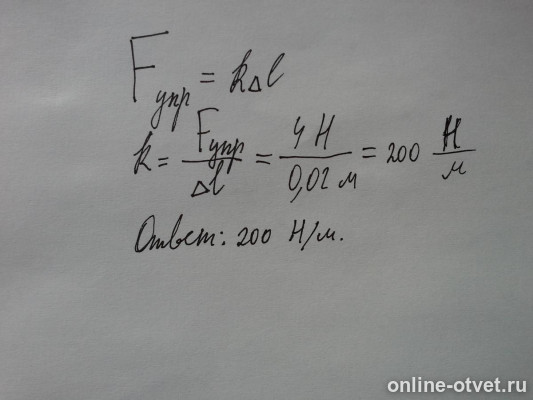 Fупр = kΔl
k = Fупр/Δl = 4 Н/0,02 м = 200 Н/м
Ответ: 200 Н/м.
online-otvet.ru